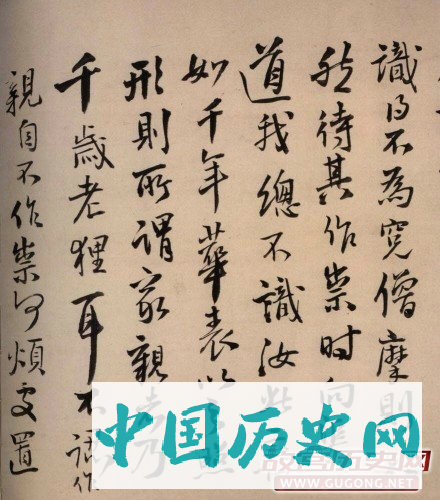 識得不為寃僧摩則
待其作祟时
道我總不識汝此
如千年華表
形則所謂家親
千歲老狸耳不
親自不作祟何煩處置
中国历史网
故宫历史网
WWW.GUGONG.NET